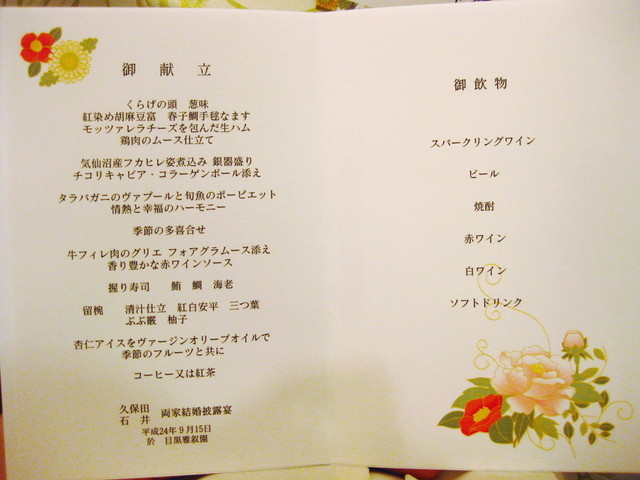 御献立
くらげの頭　葱味
紅染め胡麻豆富　春子鯛手毬なます
モッツァレラチーズを包んだ生ハム
鶏肉のムース仕立て
気仙沼産フカヒレ姿煮込み 銀器盛り
チコリキャビア・コラーゲンボール添え
タラバガニのヴァプールと旬魚のポーピエット
情熱と幸福のハーモニー
季節の多喜合せ
牛フィレ肉のグリエ フォアグラムース添え
香り豊かな赤ワインソース
握り寿司　鮪　鯛　海老
留椀　清汁仕立　紅白安平　三つ葉
ぶぶ霰　柚子
杏仁アイスをヴァージンオリーブオイルで
季節のフルーツと共に
コーヒー又は紅茶
久保田
石井
両家結婚披露宴
平成24年9月15日
於　目黒雅叙園
御飲物
スパークリングワイン
ビール
焼酎
赤ワイン
白ワイン
ソフトドリンク